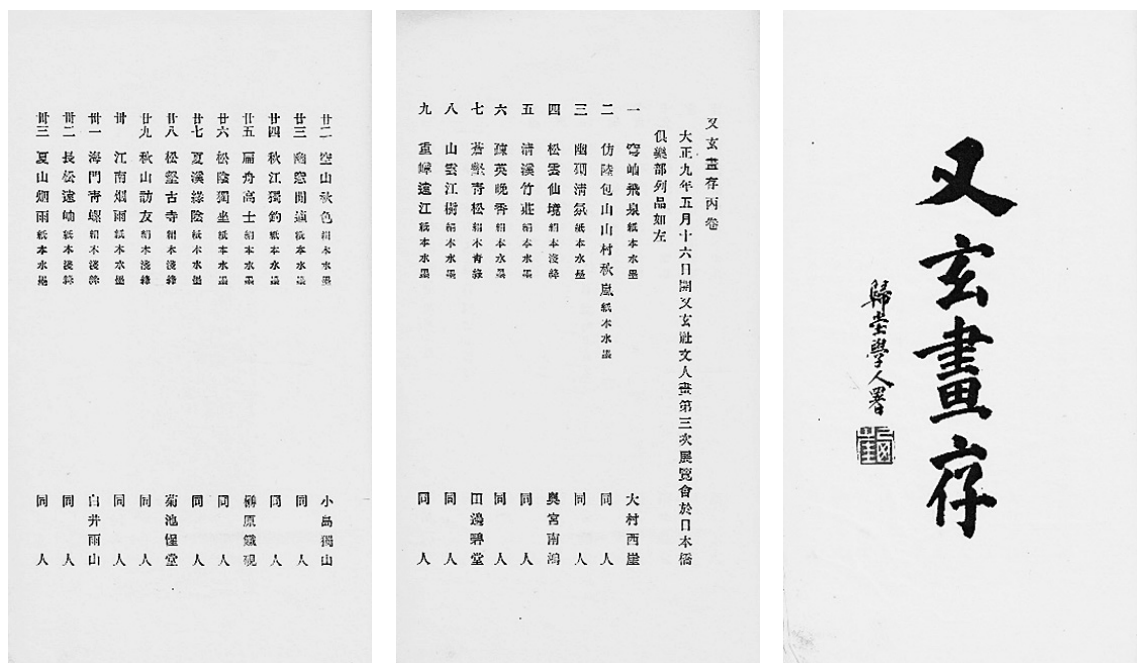 又玄畫存
歸堂學人署
又玄畫存丙卷
大正九年五月十六日開又玄社文人畫第三次展覽會於日本橋
俱樂部列品如左
一 穹岫飛泉 紙本水墨 大村西崖
二 仿陸包山山村秋嵐 紙本水墨 同人
三 幽澗清氛 紙本水墨 同人
四 松雲仙境 絹本淺絳 奧宮南鴻
五 清溪竹莊 絹本水墨 同人
六 英晚香 絹本水墨 同人
七 蒼壑青松 絹本青綠 田邊碑堂
八 山雲江樹 絹本水墨 同人
九 重嶂遠江 紙本水墨 同人
廿二 空山秋色 絹本水墨 小島獨山
廿三 幽窓聞 紙本水墨 同人
廿四 秋江獨釣 紙本水墨 同人
廿五 扁舟高士 絹本水墨 柳原鐵硯
廿六 松陰獨坐 紙本水墨 同人
廿七 夏溪綠陰 紙本水墨 同人
廿八 松壑古寺 絹本淺絳 菊池惺堂
廿九 秋山訪友 絹本淺絳 同人
卅 江南烟雨 紙本水墨 同人
卅一 海門靑螺 絹本淺絳 白井雨山
卅二 長松遠岫 紙本淺絳 同人
卅三 夏山烟雨 紙本水墨 同人